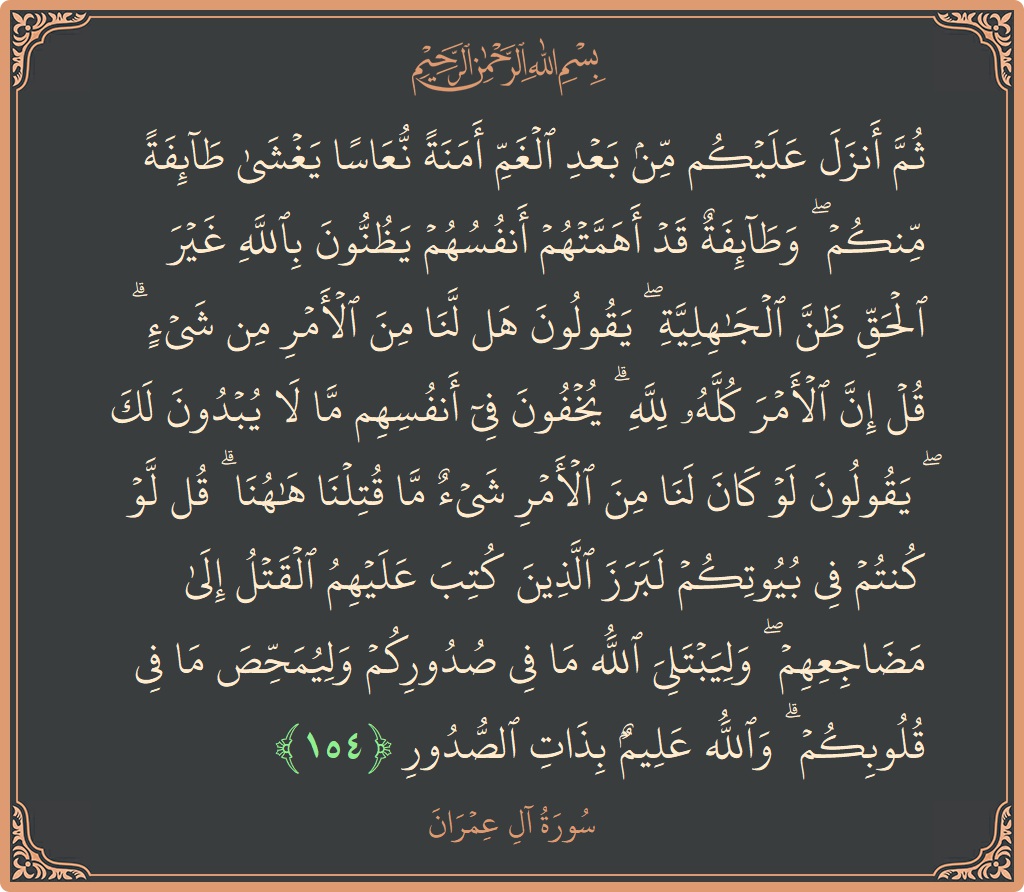 بِسۡمِ ٱللَّهِ ٱلرَّحۡمَٰنِ ٱلرَّحِيمِ
ثُمَّ أَنزَلَ عَلَيۡكُم مِّنۢ بَعۡدِ ٱلۡغَمِّ أَمَنَةٗ نُّعَاسٗا يَغۡشَىٰ طَآئِفَةٗ
مِّنكُمۡۖ وَطَآئِفَةٞ قَدۡ أَهَمَّتۡهُمۡ أَنفُسُهُمۡ يَظُنُّونَ بِٱللَّهِ غَيۡرَ
ٱلۡحَقِّ ظَنَّ ٱلۡجَٰهِلِيَّةِۖ يَقُولُونَ هَل لَّنَا مِنَ ٱلۡأَمۡرِ مِن شَيۡءٖۗ
قُلۡ إِنَّ ٱلۡأَمۡرَ كُلَّهُۥ لِلَّهِۗ يُخۡفُونَ فِيٓ أَنفُسِهِم مَّا لَا يُبۡدُونَ لَكَ
ۖ يَقُولُونَ لَوۡ كَانَ لَنَا مِنَ ٱلۡأَمۡرِ شَيۡءٞ مَّا قُتِلۡنَا هَٰهُنَاۗ قُل لَّوۡ
كُنتُمۡ فِي بُيُوتِكُمۡ لَبَرَزَ ٱلَّذِينَ كُتِبَ عَلَيۡهِمُ ٱلۡقَتۡلُ إِلَىٰ
مَضَاجِعِهِمۡۖ وَلِيَبۡتَلِيَ ٱللَّهُ مَا فِي صُدُورِكُمۡ وَلِيُمَحِّصَ مَا فِي
قُلُوبِكُمۡۗ وَٱللَّهُ عَلِيمُۢ بِذَاتِ ٱلصُّدُورِ ﴿١٥٤﴾
سُورَةُ آلِ عِمۡرَانَ